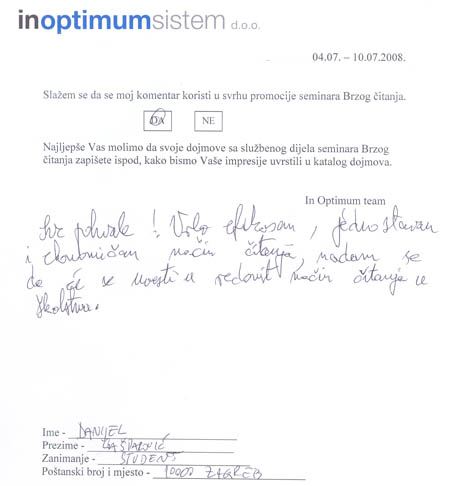 inoptimumsistem d.o.o.
04.07. – 10.07.2008.
Slažem se da se moj komentar koristi u svrhu promocije seminara Brzog čitanja.
DA NE
Najljepše Vas molimo da svoje dojmove sa službenog dijela seminara Brzog
čitanja zapišete ispod, kako bismo Vaše impresije uvrstili u katalog dojmova.
In Optimum team
Sve pohvale! Vrlo efikasan, jednostavan
i ekonomičan način čitanja, nadam se
da će se uvesti u redovit način čitanja u
školstvu.
Ime - DANIJEL
Prezime - GAŠPAROVIĆ
Zanimanje - STUDENT
Poštanski broj i mjesto - 10000 ZAGREB